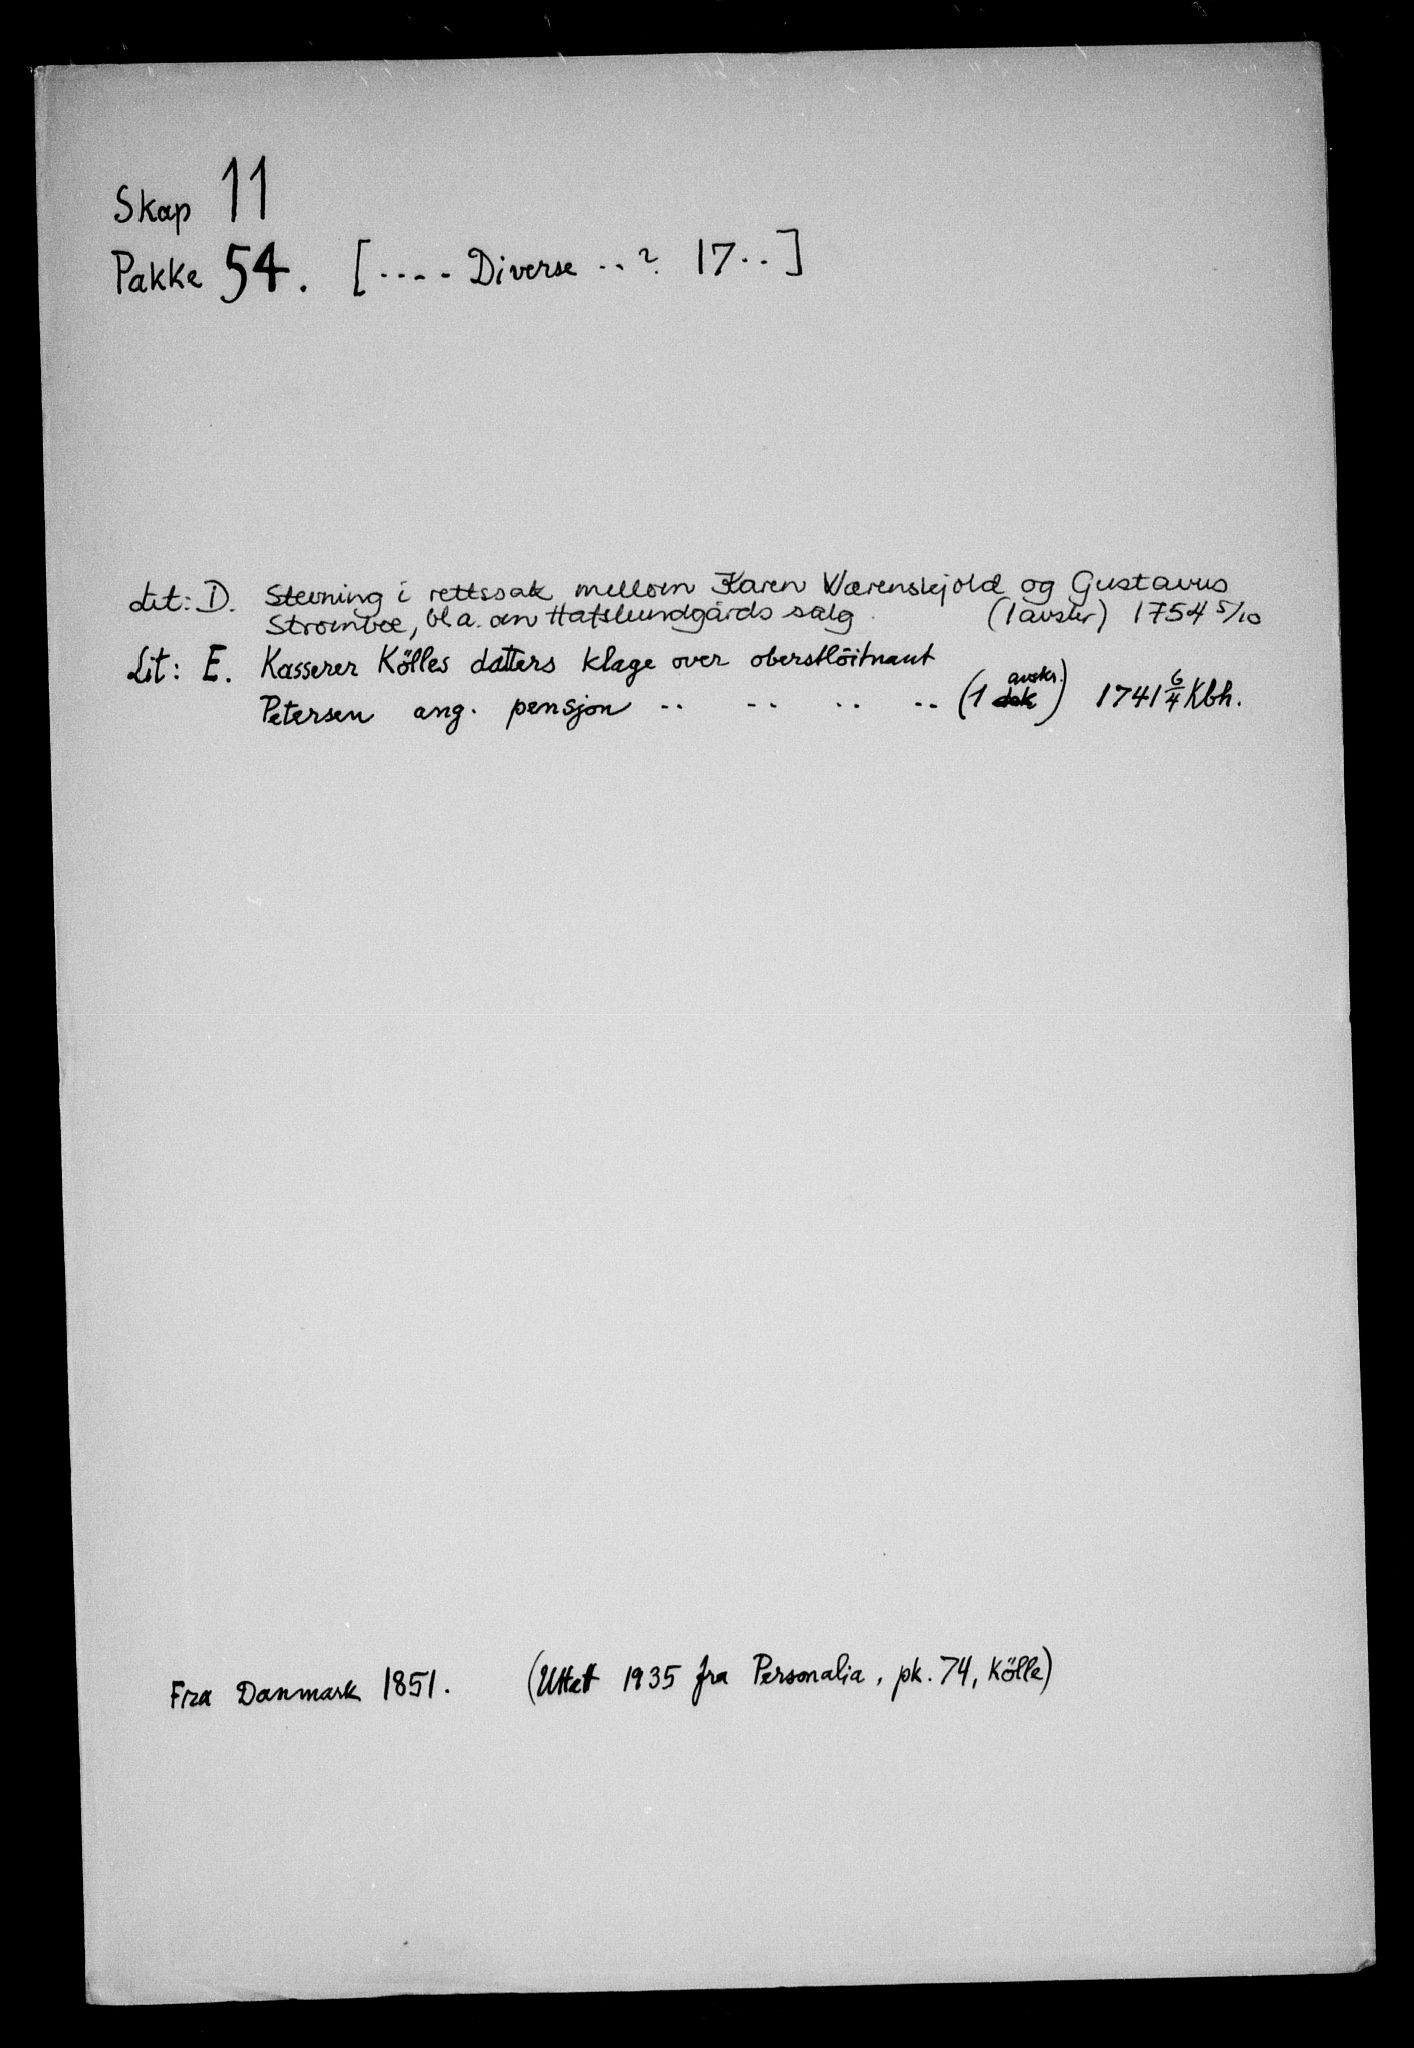 Skap 11
Pakke 54. [.... Diverse ..? 17..]
Lit: D. Stevning i rettssak mellom Karen Wærenskjold og Gustavus
Stromboe, bl a. om Hafslundgårds salg. (1 avskr) 1754 5/10
Lit: E. Kasserer Kölles datters klage over oberstlöitnant
Petersen ang. pensjon .. .. .. .. (1 avskr.) 1741 6/4 Kbh.
Fra Danmark 1851. (Uttatt 1935 fra Personalia, pk. 74, Kölle)